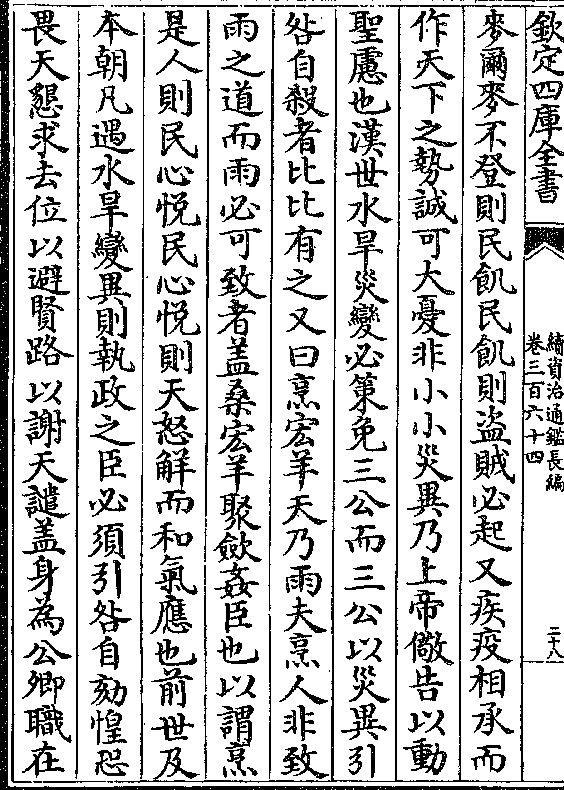 欽定四庫全書
續資治通鑑長編
卷三百六十四
二十八
麥爾麥不登則民飢民飢則盜賊必起又疾疫相承而
作天下之勢誠可大憂非小小災異乃上帝儆告以動
聖慮也漢世水旱災變必策免三公而三公以災異引
咎自殺者比比有之又曰烹宏羊天乃雨夫烹人非致
雨之道而雨必可致者盖桑宏羊聚歛姦臣也以謂烹
是人則民心悅民心悅則天怒解而和氣應也前世及
本朝凡遇水旱變異則執政之臣必須引咎自劾惶恐
畏天懇求去位以避賢路以謝天譴盖身為公卿職在